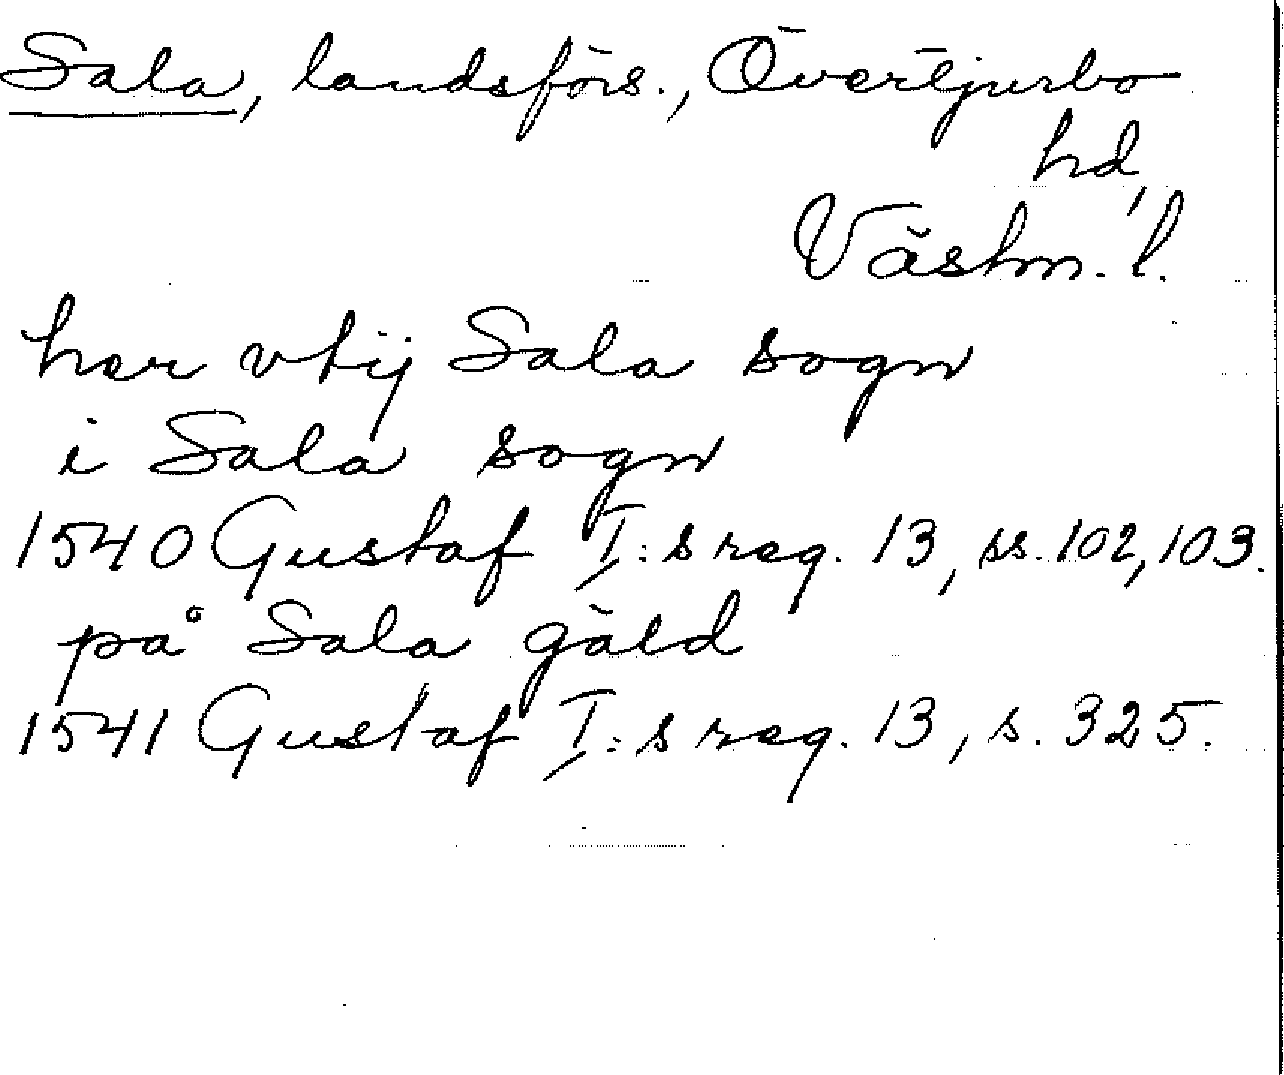 Sala, landsförs., Övertjurbo
hd,
Västm. l.
her vtij Sala sogn
i Sala sogn
1540 Gustaf I:s reg. 13, ss. 102, 103.
på Sala gäld
1541 Gustaf I:s reg. 13, s. 325.